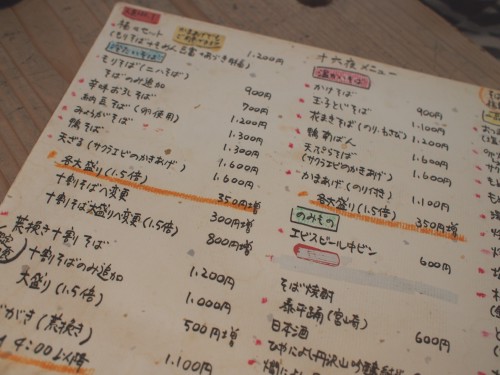 福のセット
1.200円
冷たいそば
もりそば(二八そば) 900円
そばのみ追加 700円
辛味おろしそば 1.200円
納豆そば(卵使用) 1.300円
みょうがそば 1.300円
鴨そば 1.600円
天ざる(サクラエビのかきあげ) 1.600円
各大盛り(1.5倍) 350円増
十割そばへ変更 300円増
十割そば大盛りへ変更(1.5倍) 800円増
荒挽き十割そば 1.200円
十割そばのみ追加 1.000円
大盛り(1.5倍) 500円増
がき(荒挽き) 1.100円
4:00以降
十六夜メニュー
温かいそば
かけそば 900円
玉子とじそば 1.100円
花まきそば(のり・わさび) 1.200円
鴨南ばん 1.600円
天ぷらそば
(サクラエビのかきあげ) 1.600円
かまあげ(のり付き) 1.100円
各大盛り(1.5倍) 350円増
のみもの
エビスビール中ビン 600円
そば焼酎
(宮崎) 600円
日本酒